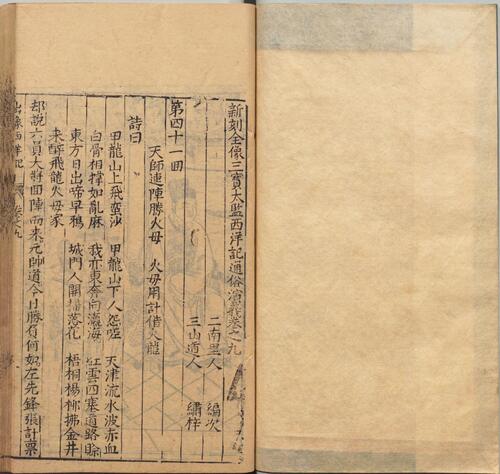 新刻全像三寶太監西洋記通俗演義卷之九
二南里人 編次
三山道人 繡梓
第四十一回
天師連陣勝火母 火母用計借火龍
詩曰
甲龍山上飛蠻沙 甲龍山下人怨嗟 天津流水波赤血
白骨相撐如亂麻 我亦東奔向瀛海 紅雲四塞道路賖
東方日出啼早鴉 城門人開掃落花 梧桐楊柳拂金井
來醉飛龍火母家
却說六員大將面陣而來元帥道今日勝負何如左先鋒張計票
出像西洋記 卷之九